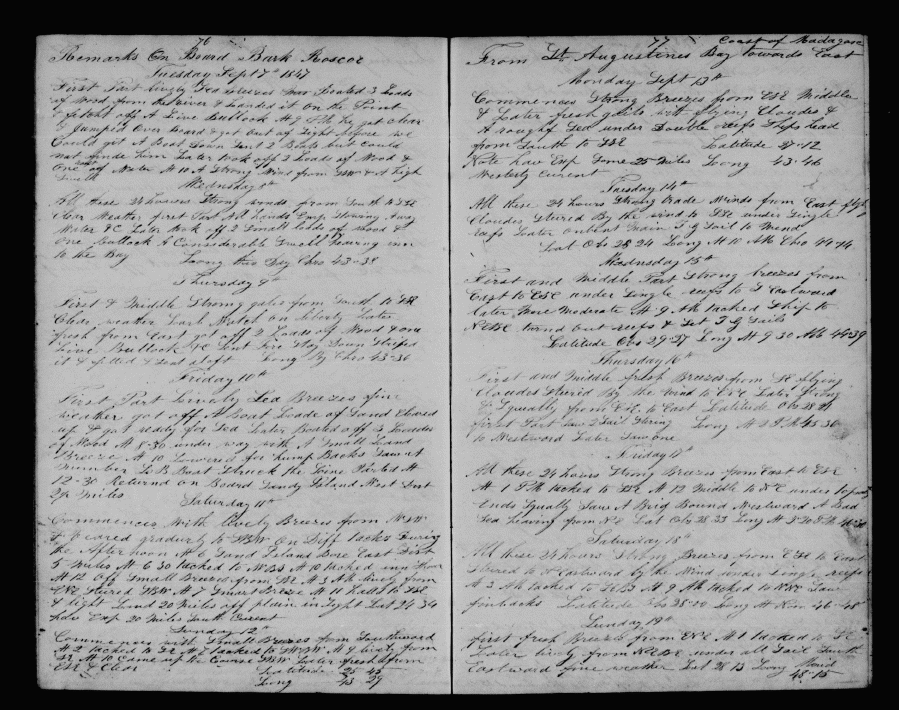 76
Remarks On Board Bark Roscoe
Tuesday Sept 7th 1847
First Part lively Sea breezes Boated 3 Loads
of Wood from the River & Landed it On the Point
& fetcht off A Live Bullock At 9 PM he got clear
& Jumped Over board & got out of Sight before we
Could get A Boat Down Sent 2 Boats but could
not finde him Later took off 2 Loads of Wood &
One of Water At 10 A Strong Wind from SSW & A high
Swell
Wednesday 8th
All these 24 houers Strong winds from South to SSE
Clear Weather first Part All hands Emp Stowing Away
Water &C Later took off 2 Small lods of Wood &
One Bullock A Considerable Swell heaving inn
to the Bay Long this Day Chro 43-38
Thursday 9th
First & Middle Strong gales from South to SSE
Clear weather Larb Watch on Liberty Later
fresh from East got off 2 Loads of Wood & one
Live Bullock &c Sent Down Striped
it & fitted & Sent aloft Long By Chro 43-36
Friday 10th
First Part lively Sea Breezes fine
weather got off A Boat Loade of Sand Cleared
up & got ready for Sea Later Boated off 3 Loades
of Wood At 8-30 under way with A Small Land
Breeze At 10 Lowered for hump Backs Saw A
Number L B Boat Struck the Line Parted At
12-30 Returnd on Board Sandy Island West Dist
2½ Miles
Saturday 11th
Commences With lively Breezes from WSW
& veared gradurly to SSW On Diff tacks During
the Afternoon At 6 Sand Island Bore East Dist
5 Miles At 6 30 tacked to WBS At 10 tacked inn Shore
At 12 Off Small Breezes from SE At 3 AM lively from
ESE Stered SSW At 7 Smart Breeze At 11 Kalls to SSE
& light Land 20 Miles off plain in Sight Lat 24 34
pdr Exp 20 Miles South Current
Sunday 12th
Commences with Small Breezes from Southward
At 2 tacked to SE At 7 tacked to WSW At 9 lively from
SE At 10 Came up the Course SSW Later fresh from
ESE & Clear Latitude 25 48
Long 43 27
77 Coast of Madagascar
From St Augustines Bay towards East
Monday Sept 13th
Commences Strong Breezes from ESE Middle
& Later fresh gales with flying Cloudes &
A rough Sea under Double reefs Ships head
from South to SSE Latitude 27-12
Note have Exp Some 25 Miles Long 43-46
Westerly Curent
Tuesday 14th
All these 24 hours Strong trade Winds from East flying
Cloudes Stered By the wind to SSE under Single
reefs Later out Main T G Sail to Mend
Lat Obs 28 24 Long At 10 AM Chro 44-14
Wednesday 15th
First and Middle Part Strong breezes from
East to ESE under Single reefs to S Eastward
later More Moderate At 9 AM tacked Ship to
NEBE turnd Out reefs & Set T G Sails
Latitude Obs 29-27 Long At 9 30 AM 44-39
Thursday 16th
First and Middle fresh Breezes from SE flying
Cloudes Stered By the wind to ENE Later Strong
& Squally from ESE to East Latitude Obs 28 21
first Part Saw 2 Sail Stering Long At 3 PM 45-30
to Westward Later Saw One
Friday 17th
All these 24 hours Strong Breezes from East to ESE
At 1 PM tacked to SSE At 12 Middle to NE under Topsails
Ends Squally Saw A Brig Bound Westward A Bad
Sea heaving from NE Lat Obs 28 33 Long At
Saturday 18th
All these 24 hours Strong Breezes from ESE to East
Stered to N Eastward by the Wind under Single reefs
At 3 AM tacked to SEBS At 9 AM tacked to NNE Saw
finbacks Latitude Obs 28-00 Long At Noon 46-48
Sunday 19th
first fresh Breezes from ENE At 1 tacked to SE
Later lively from NEBE under all Sail South
Eastward fine weather Lat 28 13 Long
48-15